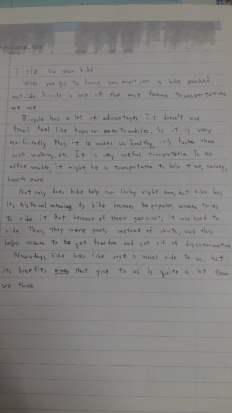 Title: On your bike
When you go to home, you might see a bike parked
outside. Bicycle is one of the most famous transportations
we use.
Bicycle has a lot of advantages. It doesn't use
fossil fuel like buses or automobiles. So it is very
eco-friendly. Plus, it makes us healthy, it's faster than
just walking, etc. It is very useful transportation. To an
office worker, it might be a transportation to help time, money,
health more.
Not only does bike help our living right now, but bike has
its historical meaning. As bike became popular, women tries
to ride it. But because of their garments, it was hard to
ride. Thus, they wore pants instead of skirts, and this
helps women to get freedom and get rid of discrimination.
Nowadays bike looks like just a usual ride to us, but
its benefits that give to us is quite a lot than
we think.